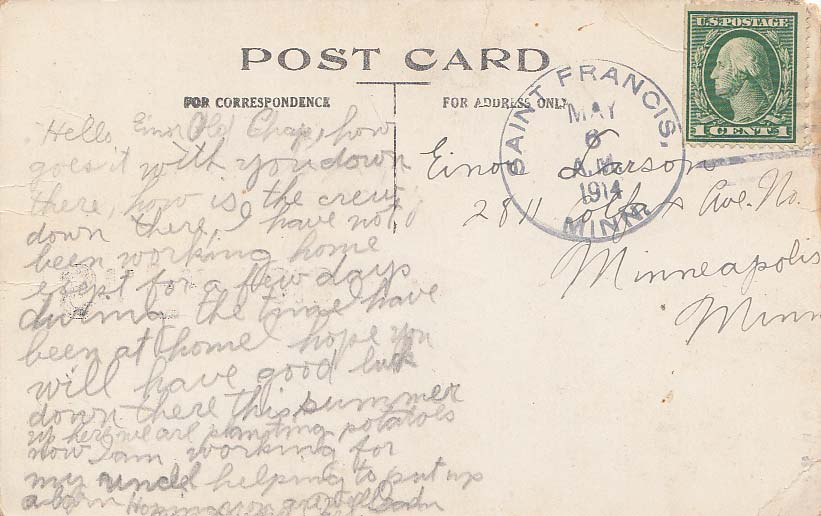 POST CARD
FOR CORRESPONDENCE
FOR ADDRESS ONLY
U.S. POSTAGE
1 CENT 1
SAINT FRANCIS,
MAY
6
A.M.
1914
MINN.
Hello Einor Old Chap, how
goes it with you down
there, how is the crew
down there, I have not
been working home
exept for a few days
during the time I have
been at home I hope you
will have good luck
down there this summer
up here we are planting potatoes
now I am working for
my uncle helping to put up
a barn Hoping you are well
Einor Larson
2811 Ave. No.
Minneapolis
Minn